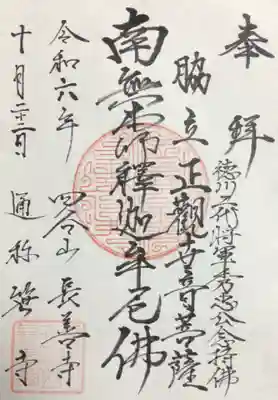 奉拝
徳川二代将軍秀忠公念持佛
脇立正觀世音菩薩
南無本師釋迦牟尼佛
四谷山長善寺
令和六年
十月二十二日
通称笹寺